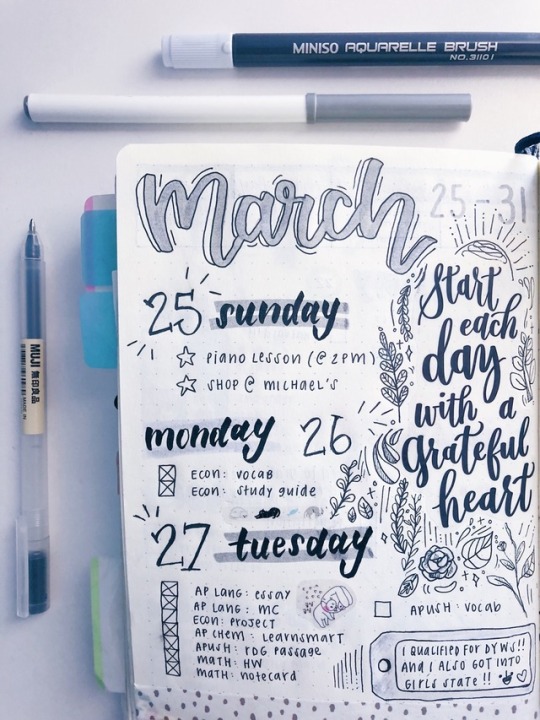 MINISO AQUARELLE BRUSH
NO.31101
MUJI 無印良品
March
25-31
25 sunday
PIANO LESSON (@ 2PM)
SHOP @ MICHAEL'S
monday 26
ECON: VOCAB
ECON: study guide
27 tuesday
AP LANG: essay
AP LANG: MC
ECON: PROJECT
AP CHEM: LEARNSMART
APUSH: RDG PASSAGE
MATH: HW
MATH: notecard
Start
each
day
with a
grateful
heart
APUSH: VOCAB
I QUALIFIED FOR DYWS!!
AND I ALSO GOT INTO
GIRLS STATE!!